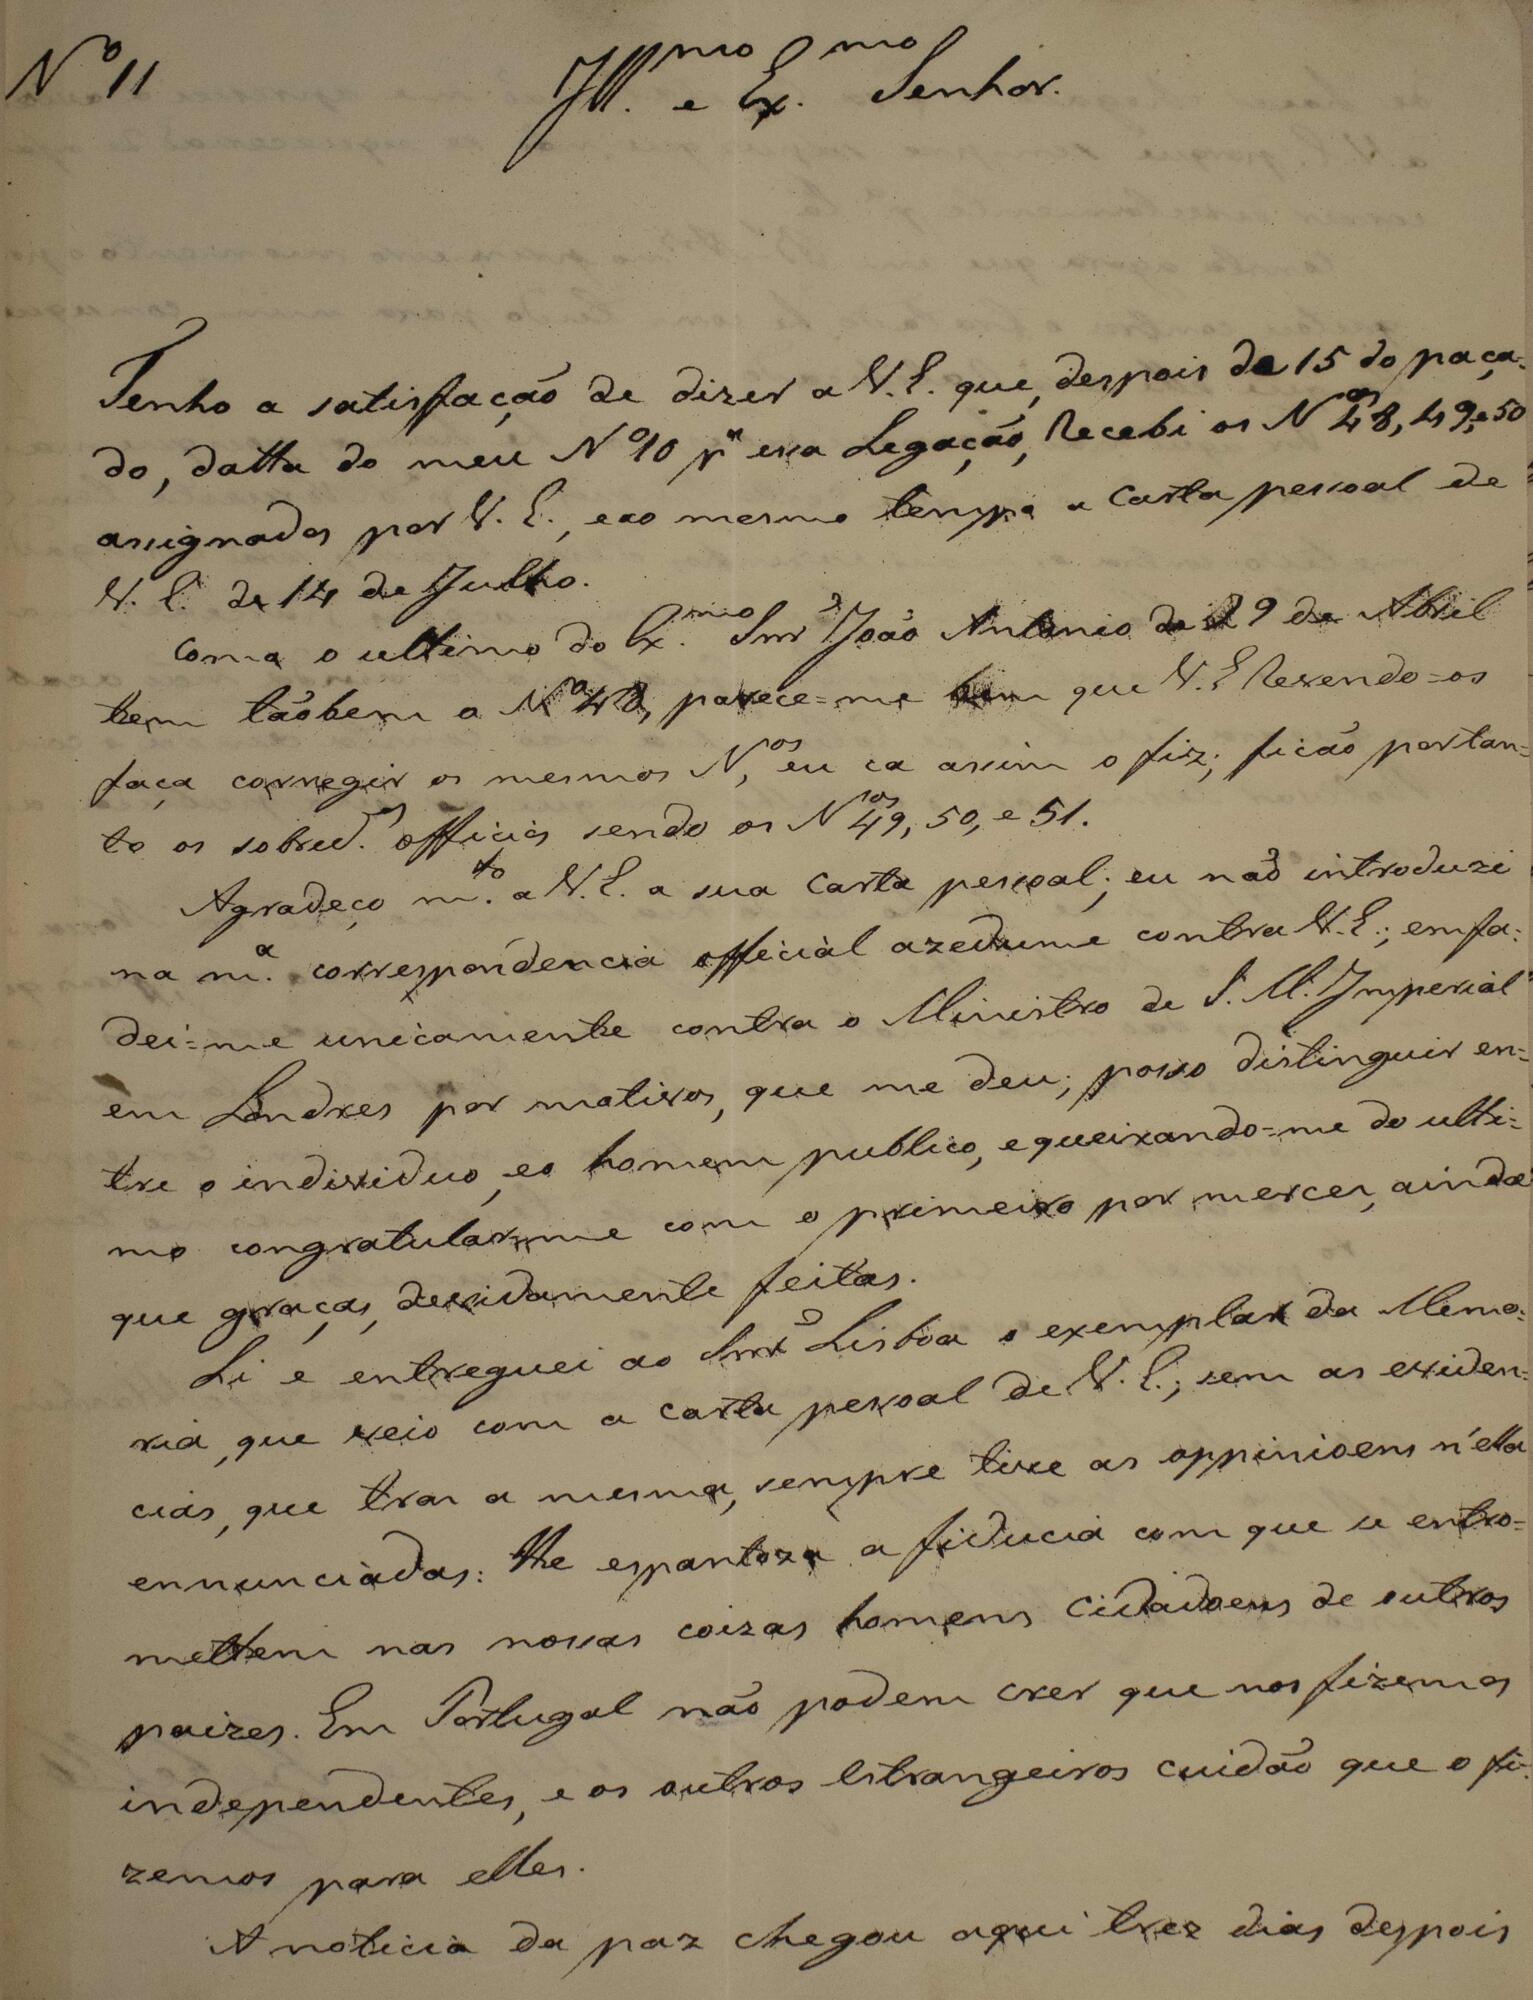 Nº 11
Ill.mo e Ex.mo Senhor.
Tenho a satisfação de dizer a V. E. que, despois de 15 do paça-
do, datta do meu Nº 10 pª essa Legação, Recebi os Nos 48, 49, e 50
assignados por V. E., e ao mesmo tempo a Carta pessoal de
V. E. de 14 de Julho.
Como o ultimo do Ex.mo Snr João Antonio de 29 de Abril
tem tãobem o Nº 48, parece=me bem que V. E. Revendo=os
faça corregir os mesmos Nos, eu ca assim o fiz; ficão portan=
to os sobred.os officios sendo os Nos 49, 50, e 51.
Agradeço m.to a V. E. a sua Carta pessoal; eu não introduzi
na m.a correspondencia official azedume contra V. E.; enfa=
dei=me unicamente contra o Ministro de S. M. Imperial
em Londres por motivos, que me deu; posso distinguir en=
tre o individuo, e o homem publico, e queixando=me do ulti=
mo congratular=me com o primeiro por merces, ainda
que graças, devidamente feitas.
Li e entreguei ao Snr Lisboa o exemplar da Memo=
ria, que veio com a carta pessoal de V. E.; sem as eviden=
cias, que traz a mesma, sempre tive as oppinioens n'ella
ennunciadas: He espantoza a fiducia com que se entro=
mettem nas nossas coizas homens Cidadoens de outros
paizes. Em Portugal não podem crer que nos fizemos
independentes, e os outros Estrangeiros cuidão que o fi=
zemos para elles.
A noticia da paz chegou aqui trez dias despois